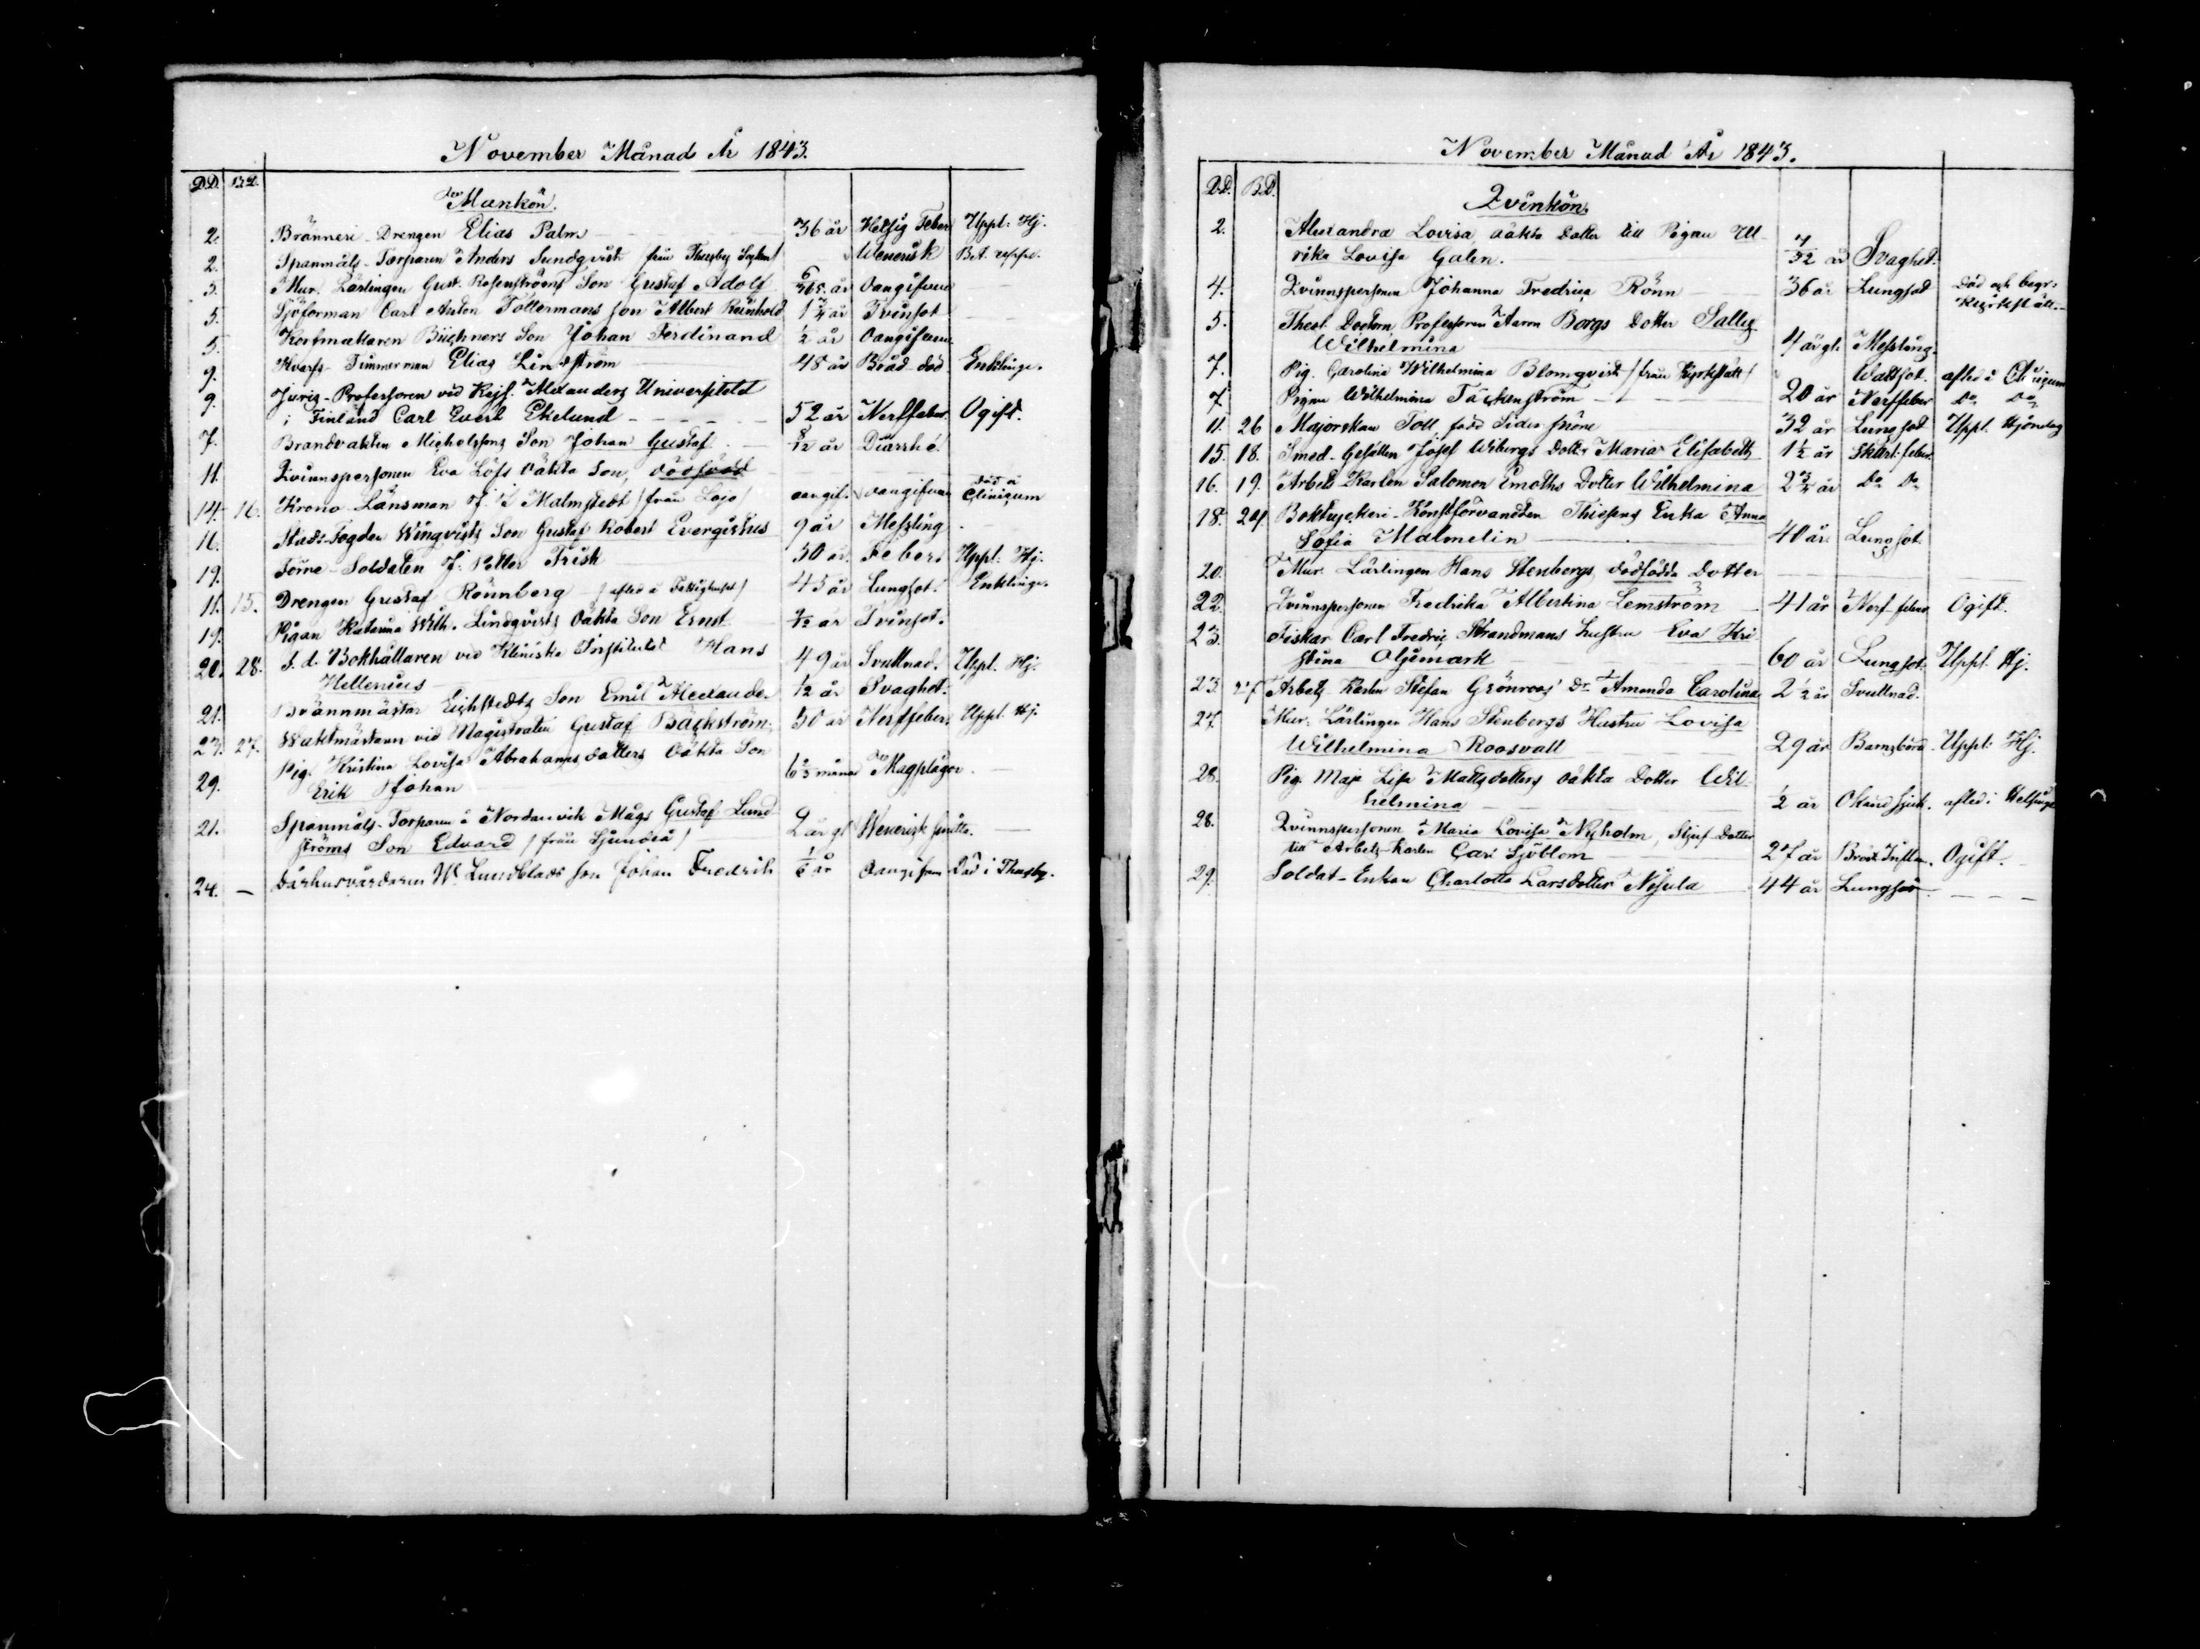 November Månad År 1843.
D.D. B.D.
Mankön.
2. Bränneri-Drengen Elias Palm 36 år Hetsig Feber Uppl. Hj.
2. Spanmåls-Torparen Anders Sundqvist från Thusby Socken Wenerisk
3. Mur. Lärlingen Gust. Rosenströms Son Gustaf Adolf 6/365 år Oangifven
5. Sjöforman Carl Anton Tottermans son Albert Reinhold 1 3/4 år Tvinsot
5. Kortmakaren Büchners Son Johan Ferdinand 1/2 år Oangifven
9. Hvarfs-Timmerman Elias Lindström 48 år Bråd död Enklinge.
9. Juris-Professoren vid Kejs. Alexanders Universitetet
i Finland Carl Evert Ekelund 52 år Nerffeber Ogift.
7. Brandvakten Michelssons Son Johan Gustaf 8/12 år Diarrhé
11. Qvinnspersonen Eva Löfs oäkta Son, dödfödd
14. 16. Krono-Länsman J. Malmstedt / från Lojo / oangif. oangifven död å Clinicum
16. Stads-Fogden Wingvists Son Gustaf Robert Evergistus 9 år Messling
19. Förre Soldaten J. Petter Frisk 50 år Feber Uppl. Hj.
11. 15. Drengen Gustaf Rönnberg / afled å Fattighuset / 43 år Lungsot. Enklinge.
19. Pigan Katarina Wilh. Lindqvists Oäkta Son Ernst år Tvinsot.
20. 28. f. d. Bokhållaren vid Kliniska Institutet Hans
Hellenius 49 år Svullnad. Uppl. Hj.
21. Brännmästar Eichstedts Son Emil Alexander 1/2 år Svaghet.
23. 27. Waktmästaren vid Magistraten Gustaf Bäckström 50 år Nerffeber Uppl. Hj.
29. Pig. Kristina Lovisa Abrahamsdotters Oäkta Son
Erik Johan månad Magplågor
21. Spanmåls-Torparen å Nordanvik Mågs Gustaf Lund
ströms Son Edvard / från Sjundeå / 2 år gl. Wenerisk smitta.
24. — Dårhusvärdaren W. Lundblads son Johan Fredrik 1/6 år Oangifven Död i Thusby.
November Månad År 1843.
D.D. B.D.
Qvinkön.
2. Alexandra Lovisa, oäkta Dotter till Pigan Ul
rika Lovisa Galen. år Svaghet.
4. Qvinnspersonen Johanna Fredrica Rönn 36 år Lungsot Död och begr.
5. Theol. Doctorn, Professoren Aaron Borgs Dotter Sally
Wilhelmina 4 år gl. Messling.
7. Pig. Carolina Wilhelmina Blomqvist / från Kyrkslätt / Wattsot. afled å Clinicum
7. Pigan Wilhelmina Täckenström 20 år Nerffeber Do Do
11. 26 Majorskan Toll född 32 år Lungsot Uppl. Hjonelag
15. 18. Smed-Gesällen Josef Wibergs Dotter Maria Elisabeth 1 1/2 år Skarl. feber.
16. 19. Arbets Karlen Salomon Emoths Dotter Wilhelmina 2 3/4 år Do Do
18. 24. Boktryckeri-Konstförvandten Thiesens Enka Anna
Sofia Malmelin 40 år Lungsot
20. Mur. Lärlingen Hans Stenbergs dödfödda Dotter
22. Qvinnspersonen Fredrika Albertina Lemström 41 år Nerf-feber Ogift.
23. Fiskar Carl Fredric Strandmans hustru Eva Kri
stina Oljemark 60 år Lungsot. Uppl. Hj.
23. Arbets Karlen Stefan Grönroos Dr Amanda Carolina 2 1/2 år Svullnad.
27. Mur. Lärlingen Hans Stenbergs Hustru Lovisa
Wilhelmina Roosvall 29 år Barnsbörd Uppl. Hj.
28. Pig. Maja Lisa Mattsdotters oäkta Dotter Wil
helmina 1/2 år Okänd sjuk. afled i Helsinge
28. Qvinnspersonen Maria Lovisa Nyholm, Stjuf Dotter
till Arbets-karlen Carl Sjöblom 27 år Bröst Inflam. Ogift.
29. Soldat-Enkan Charlotta Larsdotter Nysula 44 år Lungsot